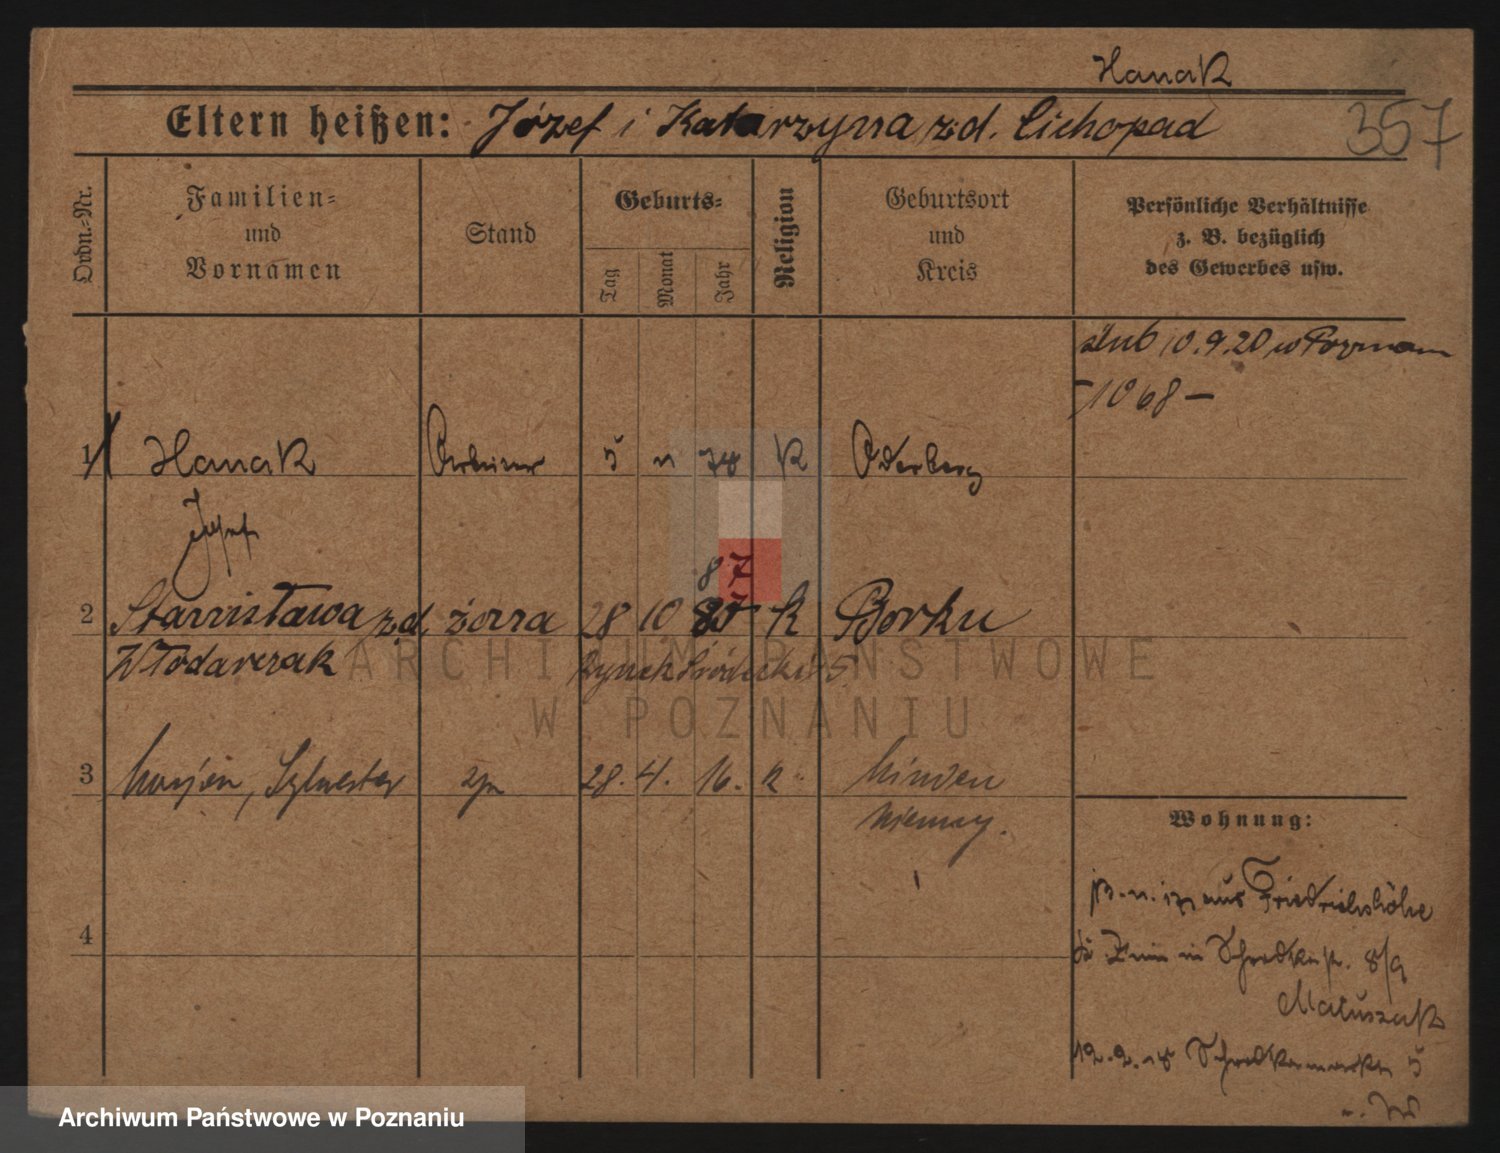 Hanak
Eltern heißen: Józef i Katarzyna zd. Cichopad
357
Ordn.-Nr.
Familien-
und
Vornamen
Stand
Geburts-
Tag
Monat
Jahr
Religion
Geburtsort
und
Kreis
Persönliche Verhältnisse
z. B. bezüglich
des Gewerbes usw.
ślub 10.9.20 w Poznaniu
-1068-
1 Hanak Arbeiter 5 11 78 K Oderberg
Josef
87
2 Stanisława zd. żona 28 10 87 K Borku
Włodarczak Rynek Śródecki 5
3 Marjan, Sylwester syn 28. 4. 16. K Minden
Niemcy.
4
Wohnung:
aus Friedrichshöhe
in Schrodkastr. 8/9
Matuszak
12.2.18 Schrodkamarkt 5
ARCHIWUM PAŃSTWOWE
W POZNANIU
Archiwum Państwowe w Poznaniu